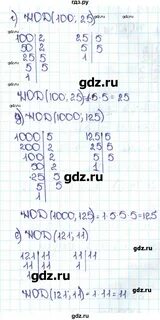 гдз.ру
г) НОД(100; 25)
100 | 2 25 | 5
50 | 2 5 | 5
25 | 5 1
5 | 5
1
gdz.ru
НОД(100; 25) = 5·5 = 25
д) НОД(1000; 125)
1000 | 5 125 | 5
200 | 2 25 | 5
100 | 2 5 | 5
50 | 2 1
25 | 5
5 | 5
1
gdz.ru
НОД(1000, 125) = 1·5·5·5=125
е) НОД(121; 11)
121 | 11 11 | 11
11 | 11 1
1
gdz.ru
НОД(121; 11) = 1·11 = 11